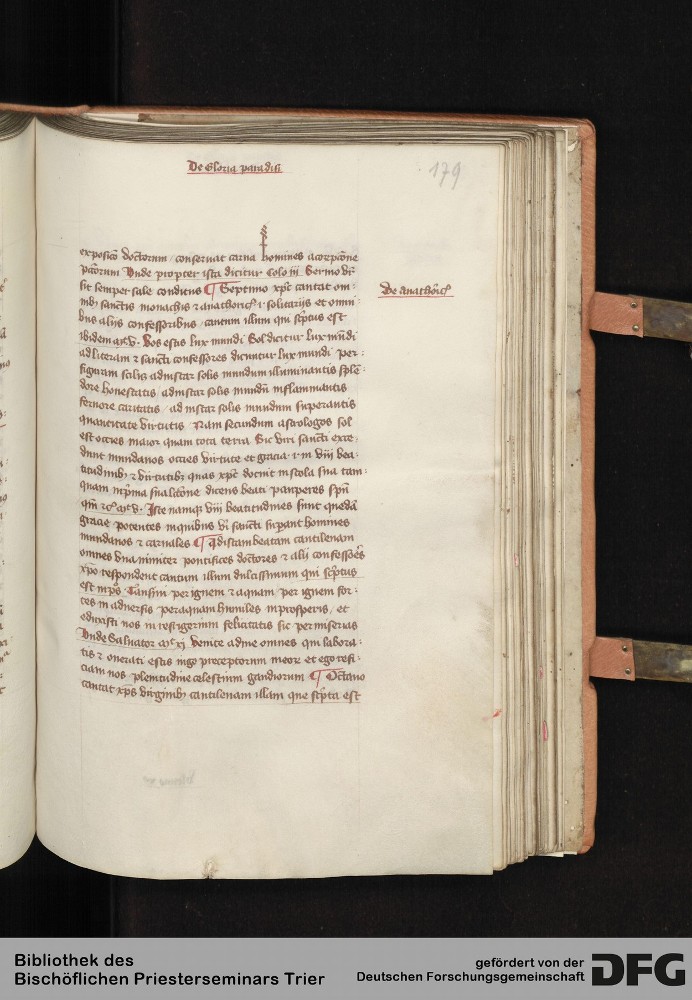 De Gloria paradisi
179
exposicō doctorum / conseruat carna homines a corpcōne
pctōrum Vnde propter ista dicitur Colo iii. Sermo vr̄
sit semper sale conditus ¶ Septimo xp̄c cantat om-
nib; sanctis monachis ⁊ anathoric͛ .i. solitarijs et omni-
bus alijs confessoribus / cantum illum qui sc̄ptus est
ibidem mt͛ v. Vos estis lux mundi Sol dicitur lux mūdi
ad literam ⁊ sancti confessores dicuntur lux mundi per
figuram scilis ad instar solis mundum illuminantis splē-
dore honestatis ad instar solis mundū inflammantis
feruore caritatis / ad instar solis mundum superantis
quantitate virtutis Nam secundum astrologos sol
est octies maior quam tota terra Sic viri sancti exce-
dunt mundanos octies virtute et gracia .i. in viij bea-
titudinib; ⁊ virtutib; quas xp̄c docuit in scola sua tam-
quam in prima sua lc̄cōne dicens beati pauperes sp̄u
qm̄ ⁊c͛ mt͛ v. Iste namq; viij beatitudines sunt quedā
gracie potentes in quibus vi sancti supant homines
mundanos ⁊ carnales ¶ Ad istam beatam cantilenam
omnes vnanimiter pontifices doctores ⁊ alij confessōes
xp̄o respondent cantum illum dulcissimum qui sc̄ptus
est in p̄s Transiui per ignem ⁊ aquam per ignem for-
tes in aduersis per aquam humiles in prosperis / et
eduxisti nos in refrigerium felicitatis sic per miserias
Vnde Saluator mt͛ xj Venite ad me omnes qui labora-
tis ⁊ onerati estis iugo preceptorum meor̄ et ego refi-
ciam uos plenitudine celestium gaudiorum ¶ Octauo
cantat xp̄s virginib; cantilenam illam que sc̄pta est
De anathoric͛
Bibliothek des
Bischöflichen Priesterseminars Trier
gefördert von der
Deutschen Forschungsgemeinschaft
DFG